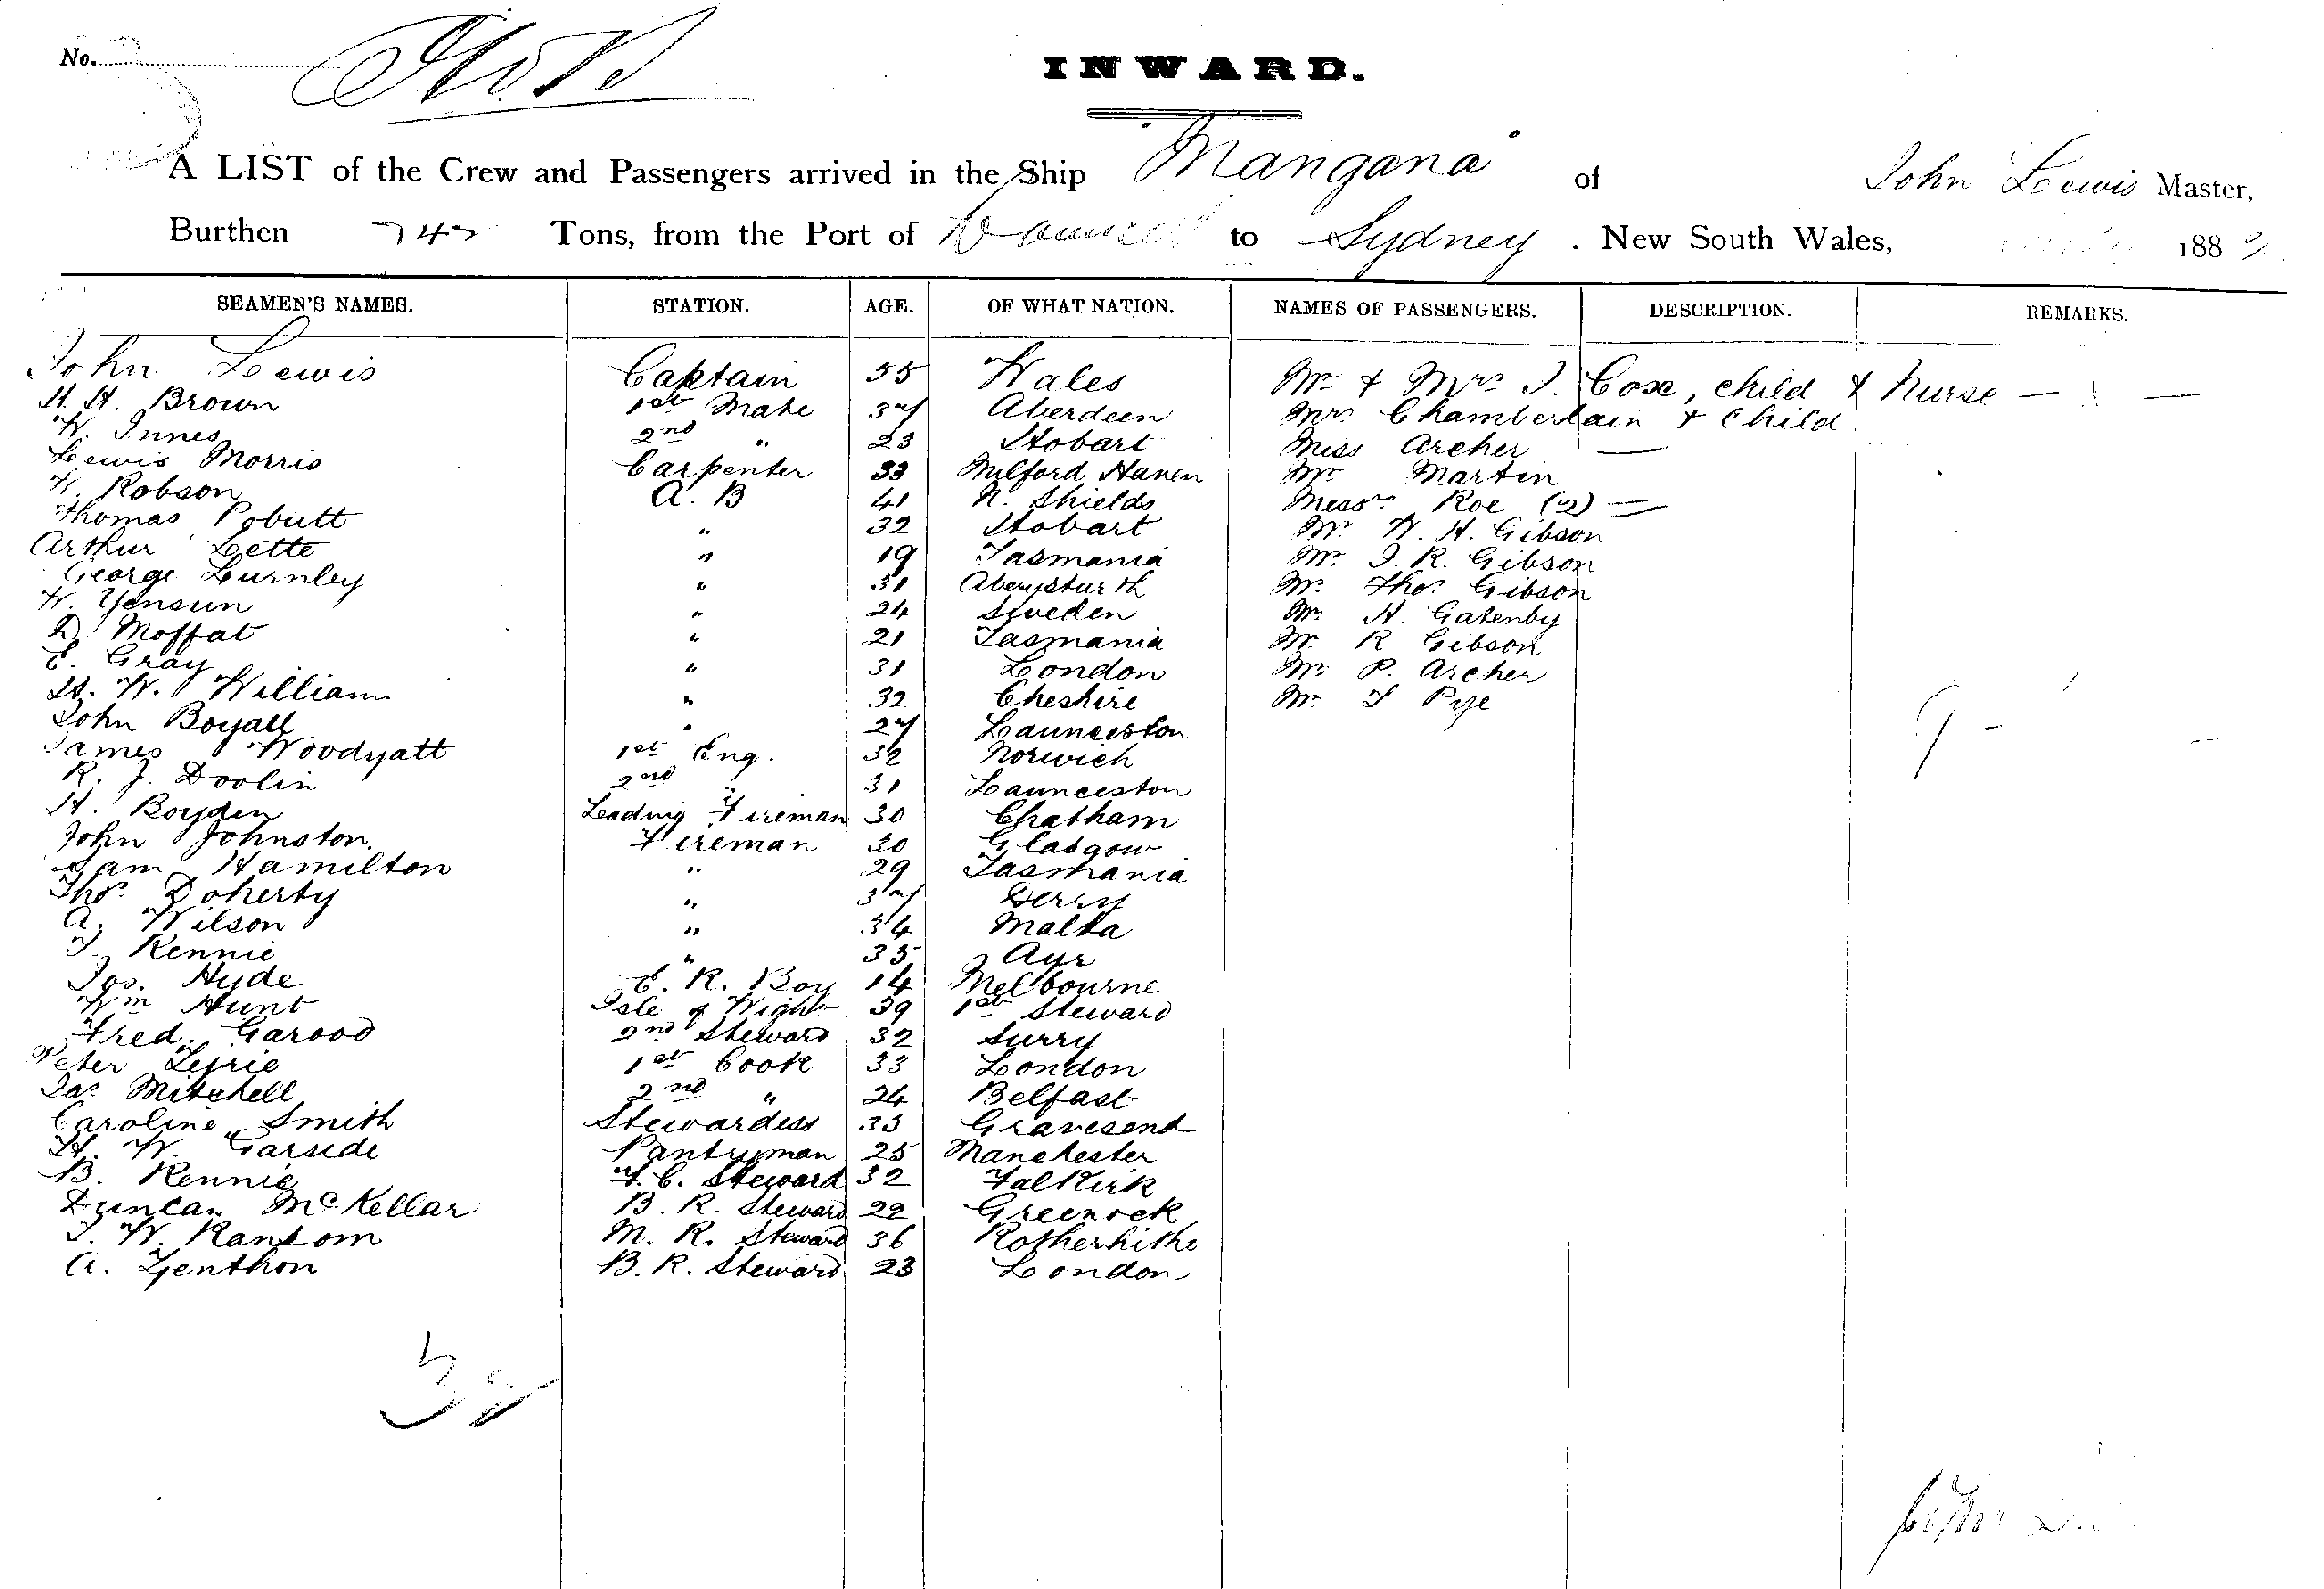 No.
INWARD.
A LIST of the Crew and Passengers arrived in the Ship Mangana of John Lewis Master,
Burthen 742 Tons, from the Port of to Sydney. New South Wales, 188
SEAMEN'S NAMES. STATION. AGE. OF WHAT NATION. NAMES OF PASSENGERS. DESCRIPTION. REMARKS.
John Lewis Captain 55 Wales Mr & Mrs J. Cox, child & nurse —
H. H. Brown 1st Mate 37 Aberdeen Mrs Chamberlain & child
W. Innes 2nd " 23 Hobart Miss Archer —
Lewis Morris Carpenter 33 Milford Haven Mr Martin
W. Robson A. B 41 N. Shields Messrs Roe (2) —
Thomas Pobutt " 32 Hobart Mr. W. H. Gibson
Arthur Lette " 19 Tasmania Mr. J. R. Gibson
George Lurnley " 31 Aberysturth Mr. Thos. Gibson
W. Yensen " 24 Sweden Mr. H. Gatenby
D. Moffat " 21 Tasmania Mr R Gibson
E. Gray " 31 London Mr P. Archer
H. W. William " 32 Cheshire Mr. T. Pye
John Boyall " 27 Launceston
James Woodyatt 1st Eng. 32 Norwich
R. J. Doolin 2nd " 31 Launceston
H. Boyden Leading Fireman 30 Chatham
John Johnston. Fireman 30 Glasgow
Sam Hamilton " 29 Tasmania
Thos. Doherty " 37 Derry
A. Wilson " 34 Malta
T. Rennie " 35 Ayr
Jos. Hyde E. R. Boy 14 Melbourne
Wm Hunt Isle of Wight 39 1st Steward
Fred. Garood 2nd Steward 32 Surry
Peter 1st Cook 33 London
Jas Mitchell 2nd " 24 Belfast
Caroline Smith Stewardess 35 Gravesend
H. W. Garside Pantryman 25 Manchester
B. Rennie F. C. Steward 32 Falkirk
Duncan McKellar B. R. Steward 22 Greenock
J. W. Ransom M. R. Steward 36 Rotherhithe
A. Zenthon B. R. Steward 23 London